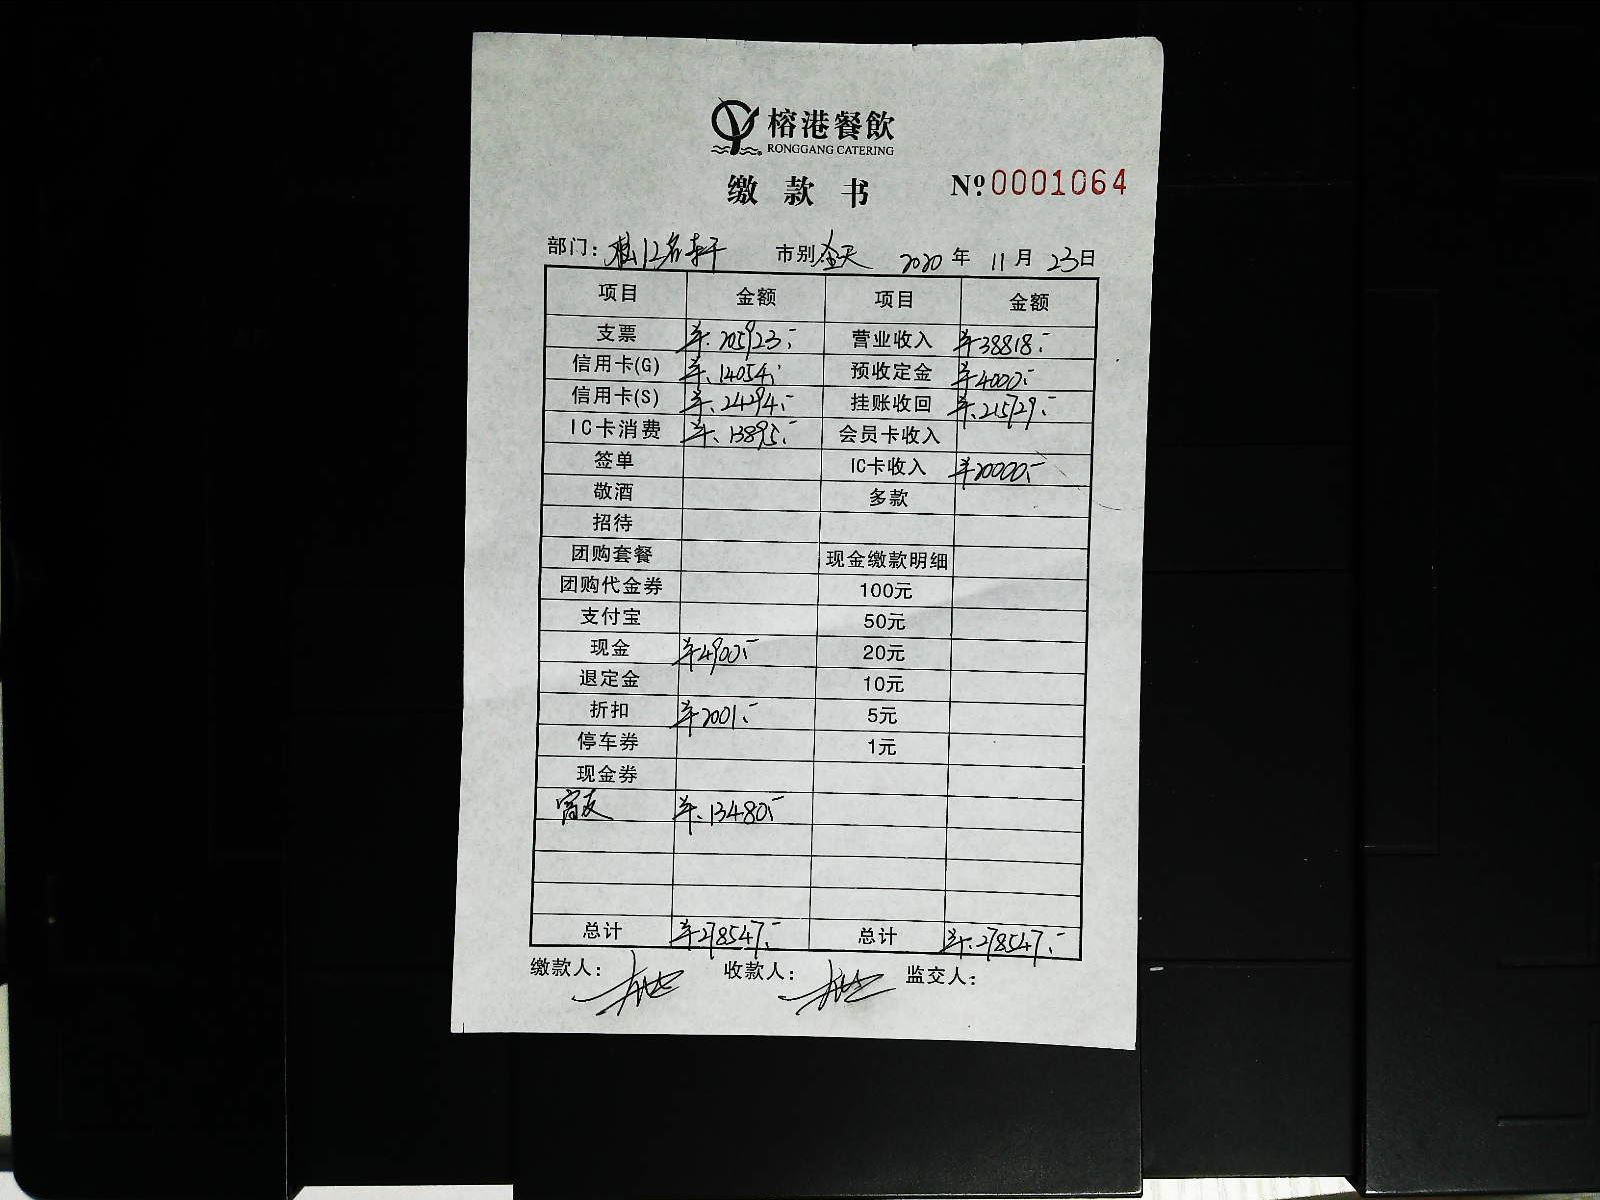 榕港餐飲
RONGGANG CATERING
缴款书 Nº 0001064
部门: 松江名轩 市别 全天 2020年 11月 23日
项目 金额 项目 金额
支票 ¥205923.- 营业收入 ¥38818.-
信用卡(G) ¥14054.- 预收定金 ¥4000.-
信用卡(S) ¥24294.- 挂账收回 ¥215729.-
IC卡消费 ¥13895.- 会员卡收入
签单 IC卡收入 ¥20000.-
敬酒 多款
招待
团购套餐 现金缴款明细
团购代金券 100元
支付宝 50元
现金 ¥4900.- 20元
退定金 10元
折扣 ¥2001.- 5元
停车券 1元
现金券
富友 ¥13480.-
总计 ¥278547.- 总计 ¥278547.-
缴款人: 收款人: 监交人: